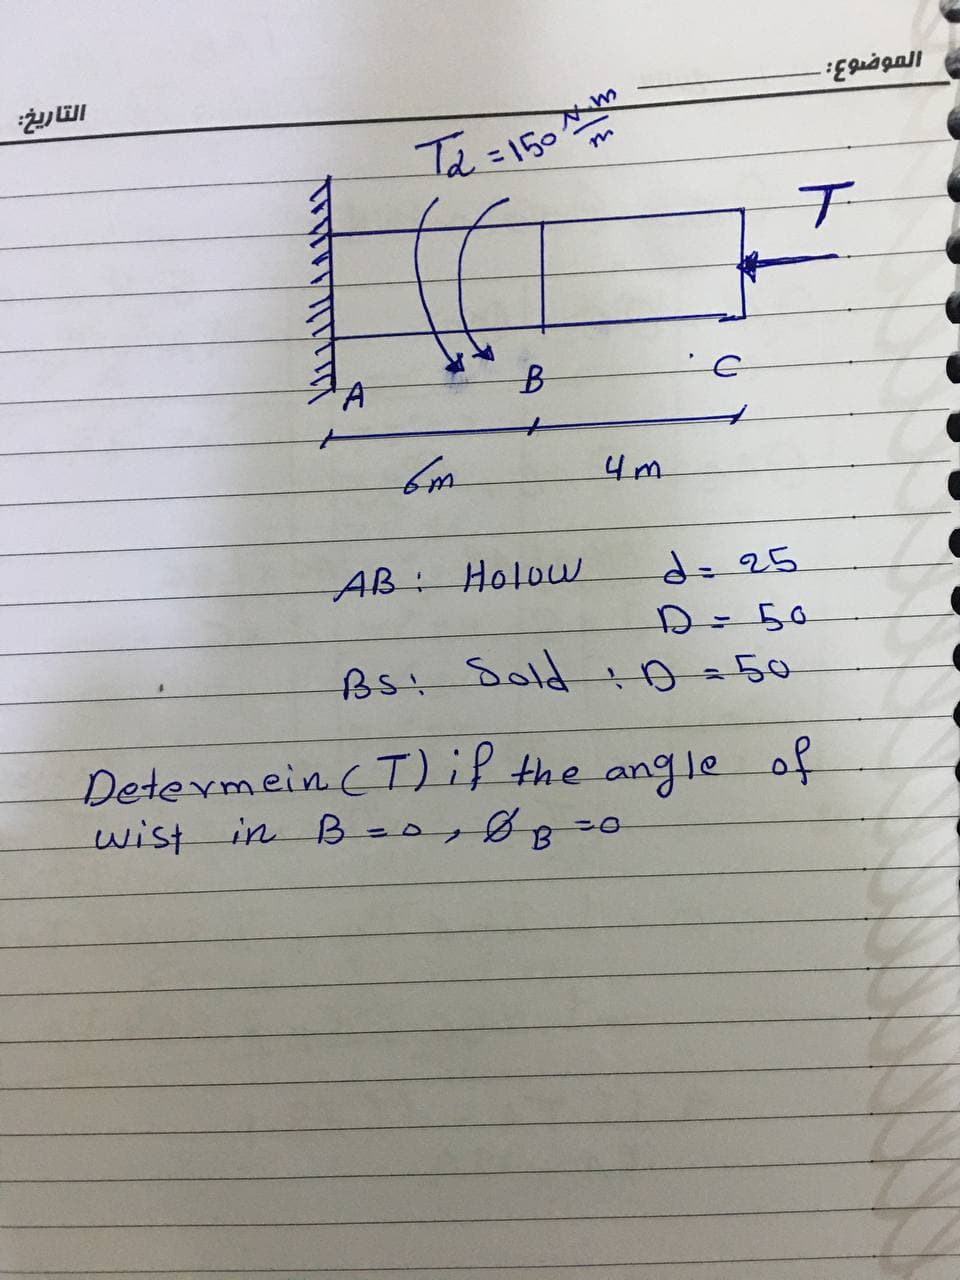 الموضوع:
التاريخ:
T2 = 150 N.m/m
T
A
B
C
6m
4m
AB: Holow d= 25
D = 50
BS: Sold : D = 50
Determein (T) if the angle of
wist in B = 0, Ø B = 0